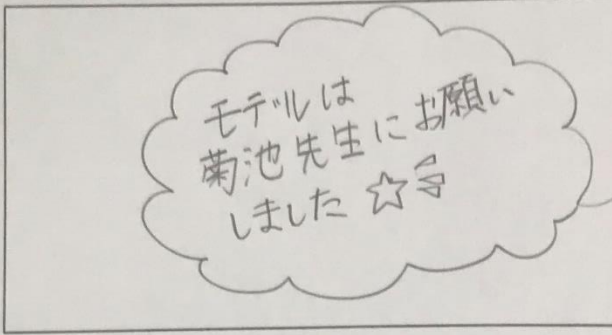 モデルは
菊池先生にお願い
しました☆